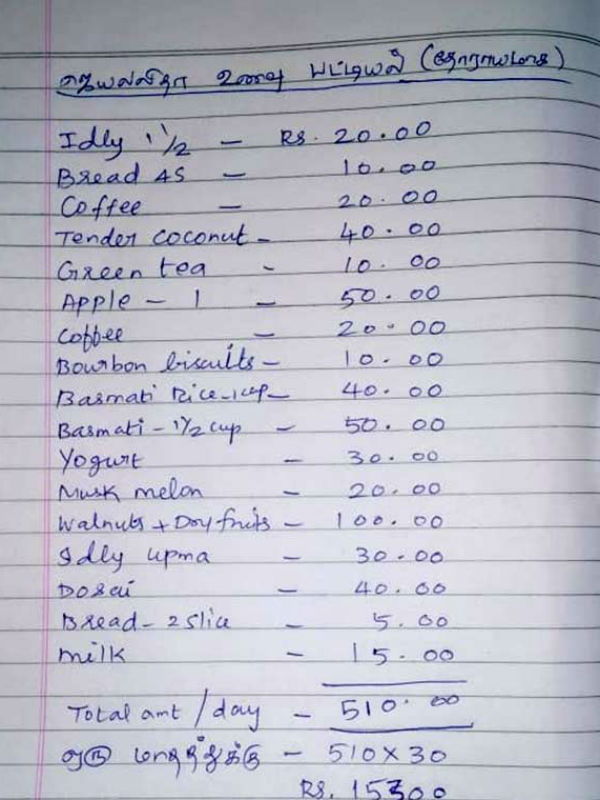 ஜெயலலிதா உணவு பட்டியல் (தோராயமாக)
Idly 1 1/2 - Rs. 20.00
Bread 4S - 10.00
Coffee - 20.00
Tender coconut - 40.00
Green tea - 10.00
Apple - 1 - 50.00
Coffee - 20.00
Bourbon biscuits - 10.00
Basmati Rice - 1 cup - 40.00
Basmati - 1 1/2 cup - 50.00
Yogurt - 30.00
Musk melon - 20.00
Walnuts + Dry fruits - 100.00
Idly upma - 30.00
Dosai - 40.00
Bread - 2 slice - 5.00
Milk - 15.00
Total amt / day - 510.00
ஒரு மாதத்துக்கு - 510 X 30
Rs. 15300